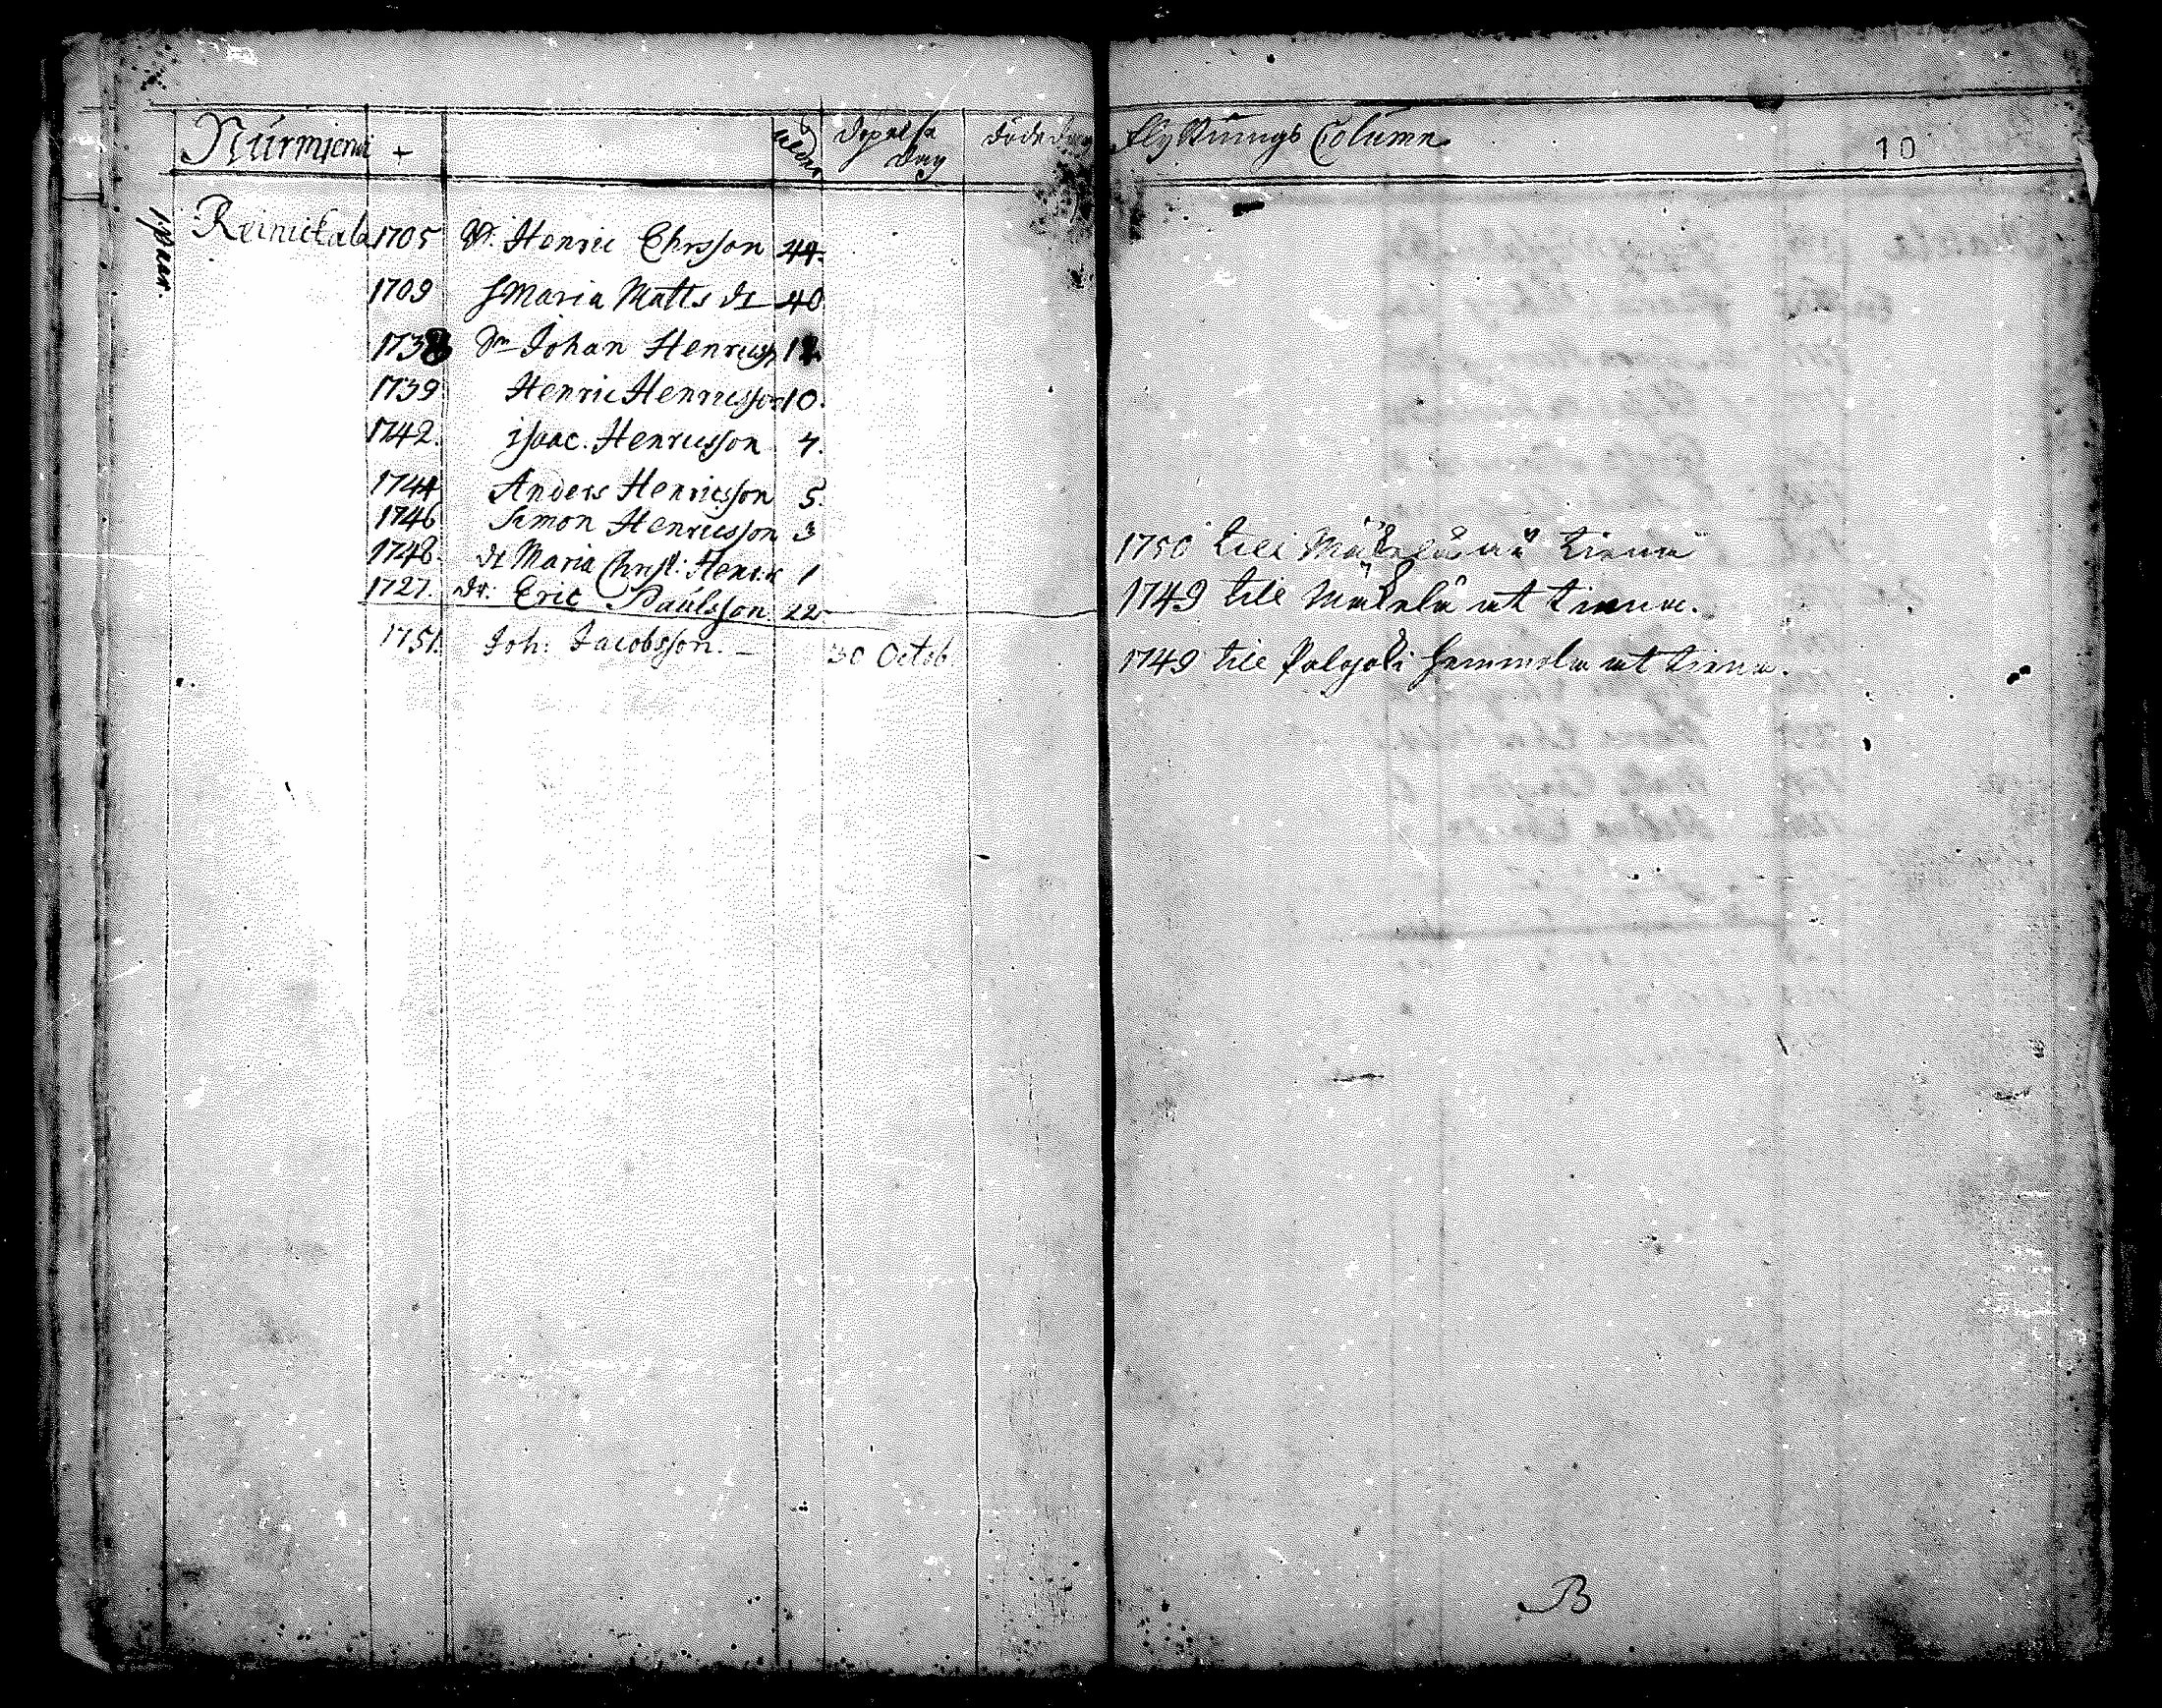 Nurmjerwi + ålder döpelse dag döde dag
Flyttnings Column 10
Reinickala 1705 Henric Ehrsson 44.
1709 H Maria Matts dr 40
1738 Sn Johan Henricss 11
1739 Henric Henricsson 10.
1742. isaac. Henricsson 7.
1744 Anders Henricsson 5.
1746 Simon Henricsson 3
1748. dr Maria Christ: Henr: 1
1727. dr: Eric Påulsson 22
1751. Joh: Jacobsson. — 30 Octob.
1750 till Mäkelä at tiena
1749 till Mäkelä at tiena.
1749 till Palojoki at tiena.
B